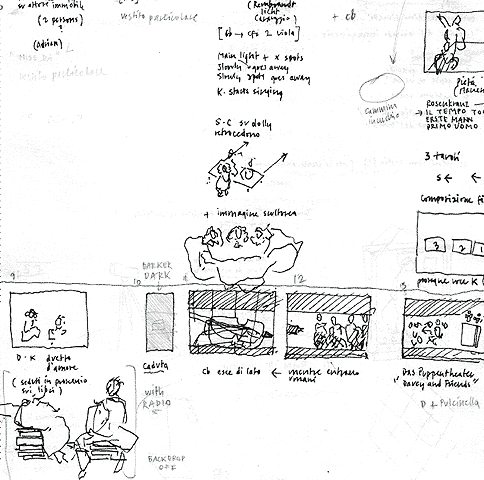 (2 persons)
(adrian)
vestito particolare
vestito particolare
(Rembrandt
light
Caravaggio)
[cb → cfs 2 viola]
Main light + x spots
Slowly goes away
Slowly spots goes away
K. starts singing
+ cb
Cammina
in cerchio
Pietà
Rosenkranz
→ IL TEMPO
ERSTE MANN
PRIMO UOMO
S-C su dolly
retrocedono
3 tavoli
S ← ←
Composizione
3
2
+ immagine scultorea
9
10
DARKER
DARK
12
13
D-K duetto
d'amore
(seduti in proscenio
sui libri)
Caduta
with
RADIO
BACKDROP
OFF
cb esce di lato ← mentre entrano
romani
"Das Puppentheater
Davey and Friends"
D + Pulcinella